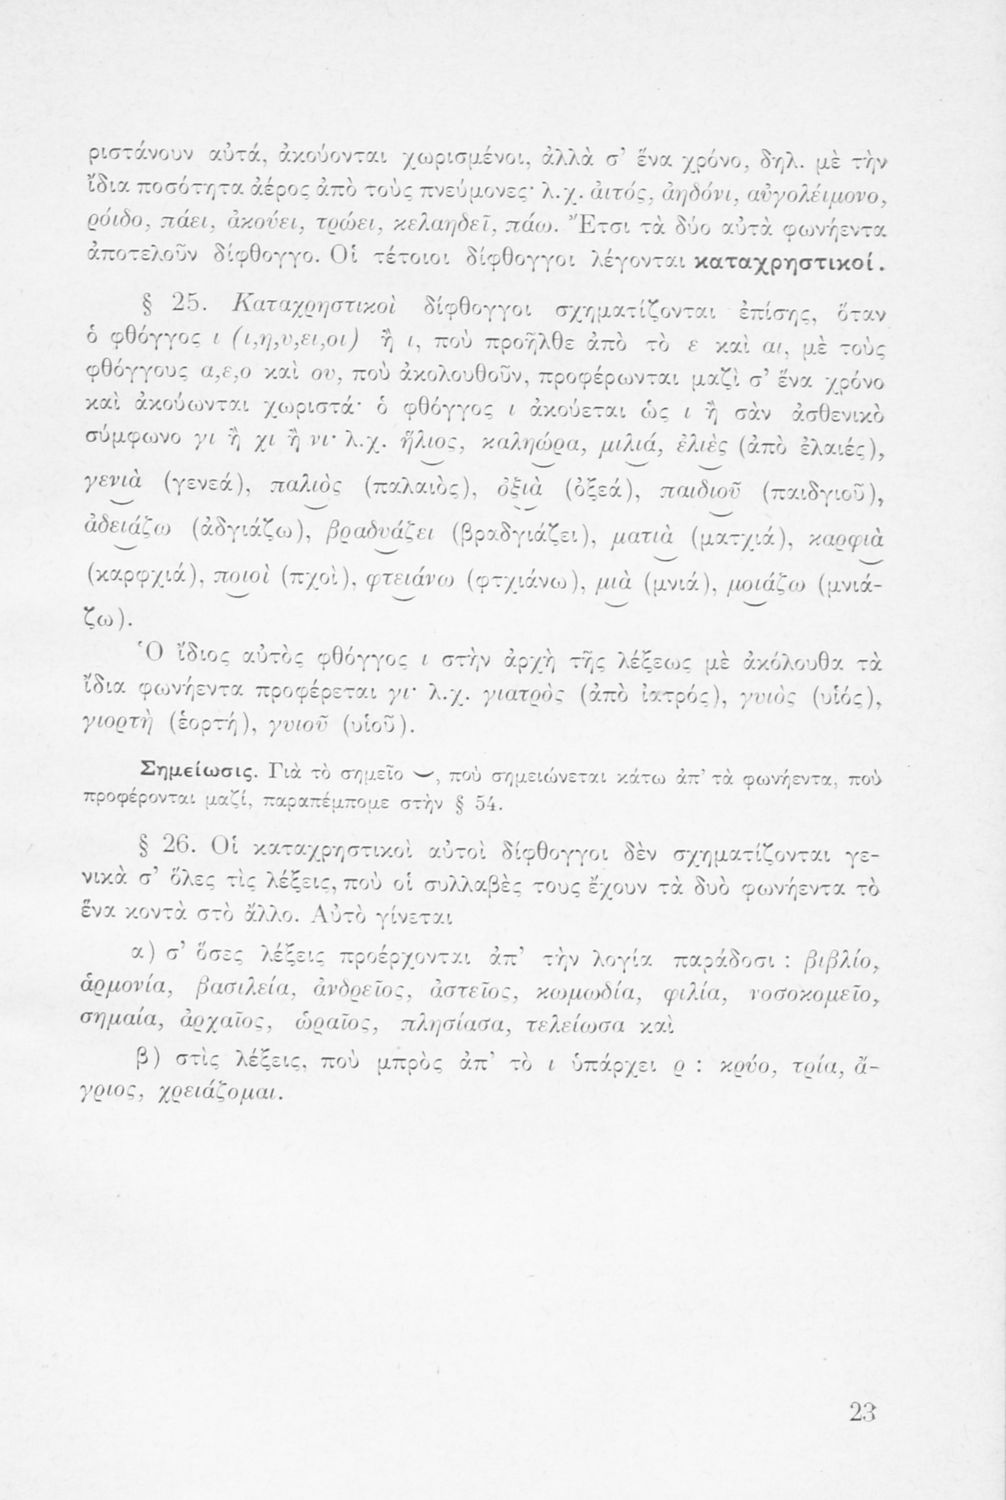 ριστάνουν αὐτά, ἀκούονται χωρισμένοι, ἀλλὰ σ’ ἕνα χρόνο, δηλ. μὲ τὴν
ἴδια ποσότητα ἀέρος ἀπὸ τοὺς πνεύμονες· λ.χ. ἀιτός, ἀηδόνι, αὐγολέιμονο,
ρόιδο, πάει, ἀκούει, τρώει, κελαηδεῖ, πάω. Ἔτσι τὰ δύο αὐτὰ φωνήεντα
ἀποτελοῦν δίφθογγο. Οἱ τέτοιοι δίφθογγοι λέγονται καταχρηστικοί.
§ 25. Καταχρηστικοὶ δίφθογγοι σχηματίζονται ἐπίσης, ὅταν
ὁ φθόγγος ι (ι,η,υ,ει,οι) ἢ ι, ποὺ προῆλθε ἀπὸ τὸ ε καὶ αι, μὲ τοὺς
φθόγγους α,ε,ο καὶ ου, ποὺ ἀκολουθοῦν, προφέρωνται μαζὶ σ’ ἕνα χρόνο
καὶ ἀκούωνται χωριστά· ὁ φθόγγος ι ἀκούεται ὡς ι ἢ σὰν ἀσθενικὸ
σύμφωνο γι ἢ χι ἢ νι· λ.χ. ἥλιος, καληώρα, μιλιά, ἐλιὲς (ἀπὸ ἐλαιές),
γενιὰ (γενεά), παλιὸς (παλαιὸς), ὀξιὰ (ὀξεά), παιδιοῦ (παιδγιοῦ),
ἀδειάζω (ἀδγιάζω), βραδυάζει (βραδγιάζει), ματιὰ (ματχιά), καρφιὰ
(καρφχιά), ποιοὶ (πχοὶ), φτειάνω (φτχιάνω), μιὰ (μνιά), μοιάζω (μνιά-
ζω).
Ὁ ἴδιος αὐτὸς φθόγγος ι στὴν ἀρχὴ τῆς λέξεως μὲ ἀκόλουθα τὰ
ἴδια φωνήεντα προφέρεται γι· λ.χ. γιατρὸς (ἀπὸ ἰατρός), γυιὸς (υἱός),
γιορτὴ (ἑορτή), γυιοῦ (υἱοῦ).
Σημείωσις. Γιὰ τὸ σημεῖο ‿, ποὺ σημειώνεται κάτω ἀπ’ τὰ φωνήεντα, ποὺ
προφέρονται μαζί, παραπέμπομε στὴν § 54.
§ 26. Οἱ καταχρηστικοὶ αὐτοὶ δίφθογγοι δὲν σχηματίζονται γε-
νικὰ σ’ ὅλες τὶς λέξεις, ποὺ οἱ συλλαβὲς τους ἔχουν τὰ δυὸ φωνήεντα τὸ
ἕνα κοντὰ στὸ ἄλλο. Αὐτὸ γίνεται
α) σ’ ὅσες λέξεις προέρχονται ἀπ’ τὴν λογία παράδοσι : βιβλίο,
ἁρμονία, βασιλεία, ἀνδρεῖος, ἀστεῖος, κωμωδία, φιλία, νοσοκομεῖο,
σημαία, ἀρχαῖος, ὡραῖος, πλησίασα, τελείωσα καὶ
β) στὶς λέξεις, ποὺ μπρὸς ἀπ’ τὸ ι ὑπάρχει ρ : κρύο, τρία, ἄ-
γριος, χρειάζομαι.
23